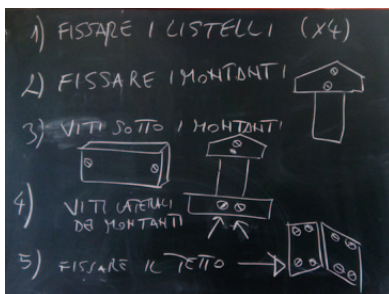 1) FISSARE I LISTELLI (x4)
2) FISSARE I MONTANTI
3) VITI SOTTO I MONTANTI
4) VITI LATERALI
DEI MONTANTI
5) FISSARE IL TETTO